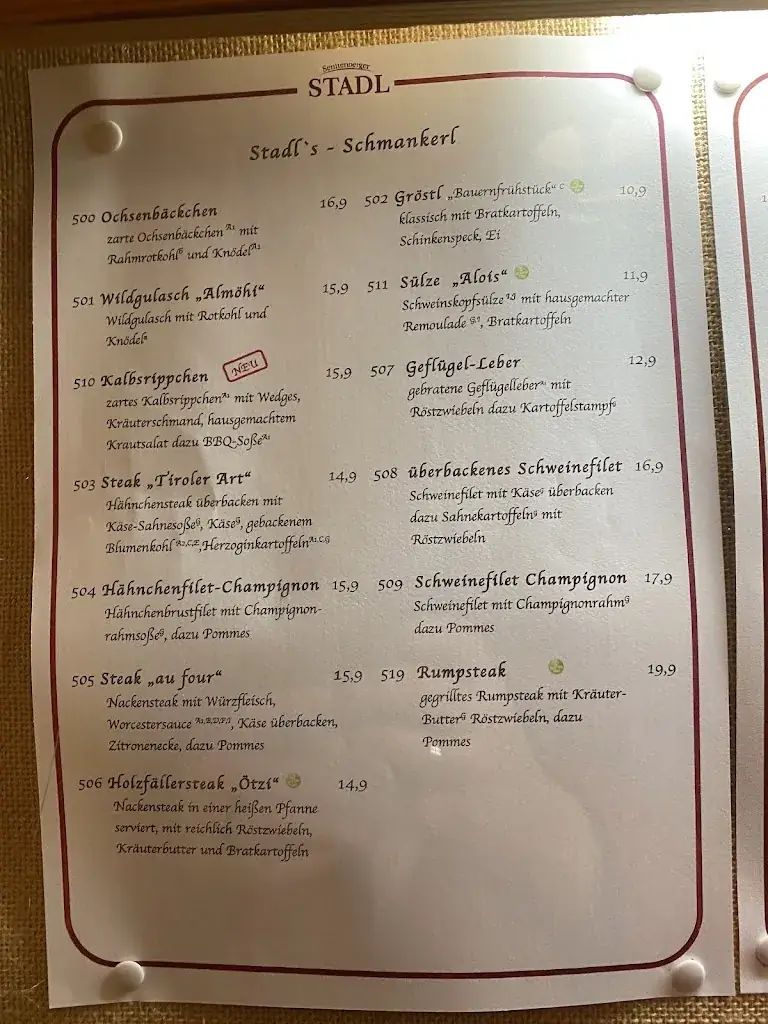 Senftenberger
STADL
Stadl`s - Schmankerl
500 Ochsenbäckchen 16,9
zarte Ochsenbäckchen A1 mit
Rahmrotkohl G und Knödel A1
501 Wildgulasch „Almöhi“ 15,9
Wildgulasch mit Rotkohl und
Knödel
510 Kalbsrippchen NEU 15,9
zartes Kalbsrippchen A1 mit Wedges,
Kräuterschmand, hausgemachtem
Krautsalat dazu BBQ-Soße A1
503 Steak „Tiroler Art“ 14,9
Hähnchensteak überbacken mit
Käse-Sahnesoße G, Käse G, gebackenem
Blumenkohl A2,C,E, Herzoginkartoffeln A1,C,G
504 Hähnchenfilet-Champignon 15,9
Hähnchenbrustfilet mit Champignon-
rahmsoße G, dazu Pommes
505 Steak „au four“ 15,9
Nackensteak mit Würzfleisch,
Worcestersauce A1,B,D,F,I, Käse überbacken,
Zitronenecke, dazu Pommes
506 Holzfällersteak „Ötzi“ 14,9
Nackensteak in einer heißen Pfanne
serviert, mit reichlich Röstzwiebeln,
Kräuterbutter und Bratkartoffeln
502 Gröstl „Bauernfrühstück“ C 10,9
klassisch mit Bratkartoffeln,
Schinkenspeck, Ei
511 Sülze „Alois“ 11,9
Schweinskopfsülze mit hausgemachter
Remoulade, Bratkartoffeln
507 Geflügel-Leber 12,9
gebratene Geflügelleber mit
Röstzwiebeln dazu Kartoffelstampf G
508 überbackenes Schweinefilet 16,9
Schweinefilet mit Käse G überbacken
dazu Sahnekartoffeln G mit
Röstzwiebeln
509 Schweinefilet Champignon 17,9
Schweinefilet mit Champignonrahm G
dazu Pommes
519 Rumpsteak 19,9
gegrilltes Rumpsteak mit Kräuter-
Butter G Röstzwiebeln, dazu
Pommes